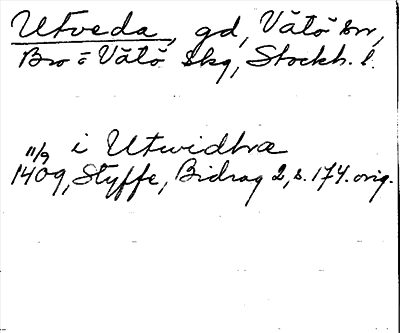 Utveda, gd, Vätö sn,
Bro o Vätö skg, Stockh. l.
11/9 i Utwidhræ
1409, Styffe, Bidrag 2, s. 174. orig.